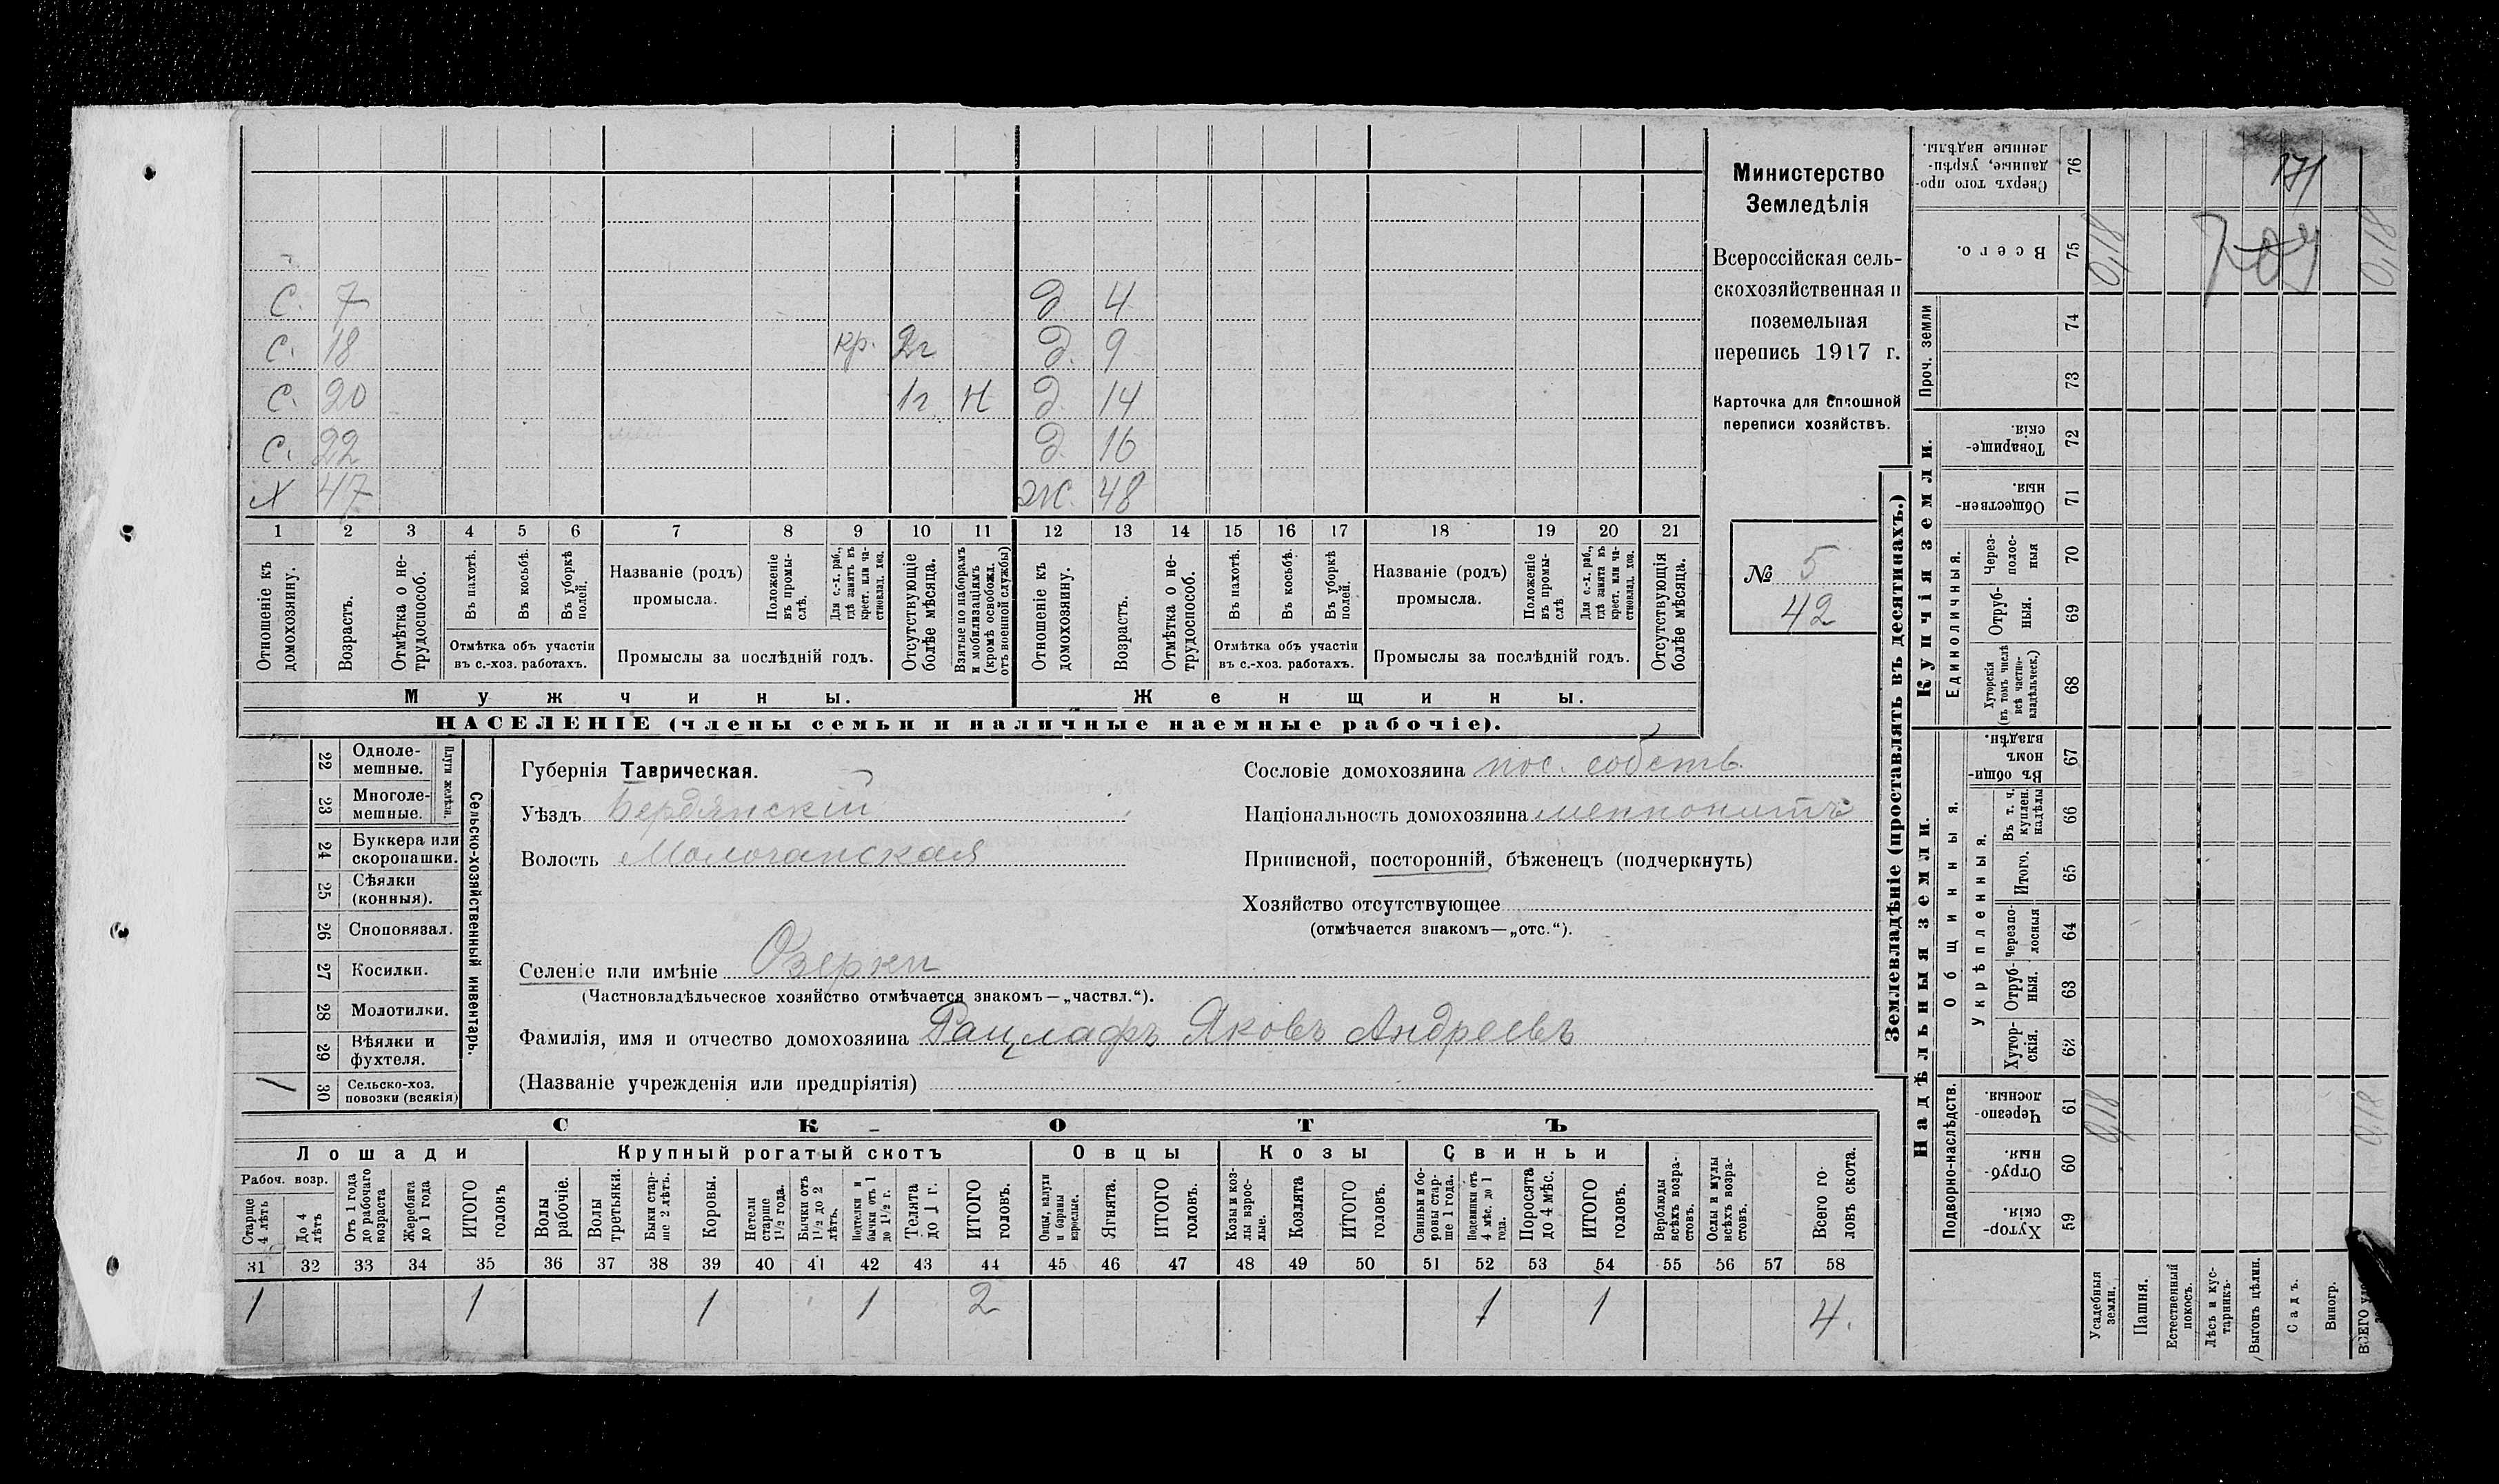 Министерство
Земледѣлія
Всероссійская сель-
скохозяйственная и
поземельная
перепись 1917 г.
Карточка для сплошной
переписи хозяйствъ.
№ 5
42
С. 7
д. 4
С. 18 кр. 2г
д. 9
С. 20 1г Н
д. 14
С. 22
д. 16
Х 47
Ж. 48
1 2 3 4 5 6 7 8 9 10 11 12 13 14 15 16 17 18 19 20 21
Отношеніе къ домохозяину.
Возрастъ.
Отмѣтка о не-трудоспособ.
Въ пахотѣ.
Въ косьбѣ.
Въ уборкѣ полей.
Отмѣтка объ участіи
въ с.-хоз. работахъ.
Названіе (родъ)
промысла.
Положеніе въ промы-слѣ.
Для с.-х. раб., гдѣ занятъ въ крест. или ча-стновлад. хоз.
Промыслы за послѣдній годъ.
Отсутствующіе болѣе мѣсяца.
Взятые по наборамъ и мобилизаціямъ (кромѣ освобожд. отъ военной службы)
Отношеніе къ домохозяину.
Возрастъ.
Отмѣтка о не-трудоспособ.
Въ пахотѣ.
Въ косьбѣ.
Въ уборкѣ полей.
Отмѣтка объ участіи
въ с.-хоз. работахъ.
Названіе (родъ)
промысла.
Положеніе въ промы-слѣ
Для с.-х. раб., гдѣ занята въ крест. или ча-стновлад. хоз.
Промыслы за послѣдній годъ.
Отсутствующія болѣе мѣсяца.
Мужчины.
Женщины.
НАСЕЛЕНІЕ (члены семьи и наличные наемные рабочіе).
Сельско-хозяйственный инвентарь.
Плуги желѣзн.
22 Одноле-мешные.
23 Многоле-мешные.
24 Буккера или скоропашки.
25 Сѣялки (конныя).
26 Сноповязал.
27 Косилки.
28 Молотилки.
29 Вѣялки и фухтеля.
30 Сельско-хоз. повозки (всякія)
1
Губернія Таврическая.
Уѣздъ Бердянскій
Волость Молочанская
Селеніе или имѣніе Озерки
(Частновладѣльческое хозяйство отмѣчается знакомъ—„частвл.“).
Фамилія, имя и отчество домохозяина Рацлафъ Яковъ Андреевъ
(Названіе учрежденія или предпріятія)
Сословіе домохозяина пос. собств.
Національность домохозяина меннонитъ
Приписной, посторонній, бѣженецъ (подчеркнуть)
Хозяйство отсутствующее
(отмѣчается знакомъ—„отс.“).
СКОТЪ
Лошади
Крупный рогатый скотъ
Овцы
Козы
Свиньи
Рабоч. возр.
Старше 4 лѣтъ
До 4 лѣтъ
Отъ 1 года до рабочаго возраста
Жеребята до 1 года
ИТОГО головъ
Волы рабочіе.
Волы третьяки.
Быки стар-ше 2 лѣтъ.
Коровы.
Нетели старше 1½ года.
Бычки отъ 1½ до 2 лѣтъ.
Подтелки и бычки отъ 1 до 1½ г.
Телята до 1 г.
ИТОГО головъ.
Овцы, валухи и бараны взрослые.
Ягнята.
ИТОГО головъ.
Козы и коз-лы взрос-лые.
Козлята
ИТОГО головъ.
Свиньи и бо-ровы стар-ше 1 года.
Подсвинки отъ 4 мѣс. до 1 года.
Поросята до 4 мѣс.
ИТОГО головъ.
Верблюды всѣхъ возра-стовъ.
Ослы и мулы всѣхъ возра-стовъ.
Всего го-ловъ скота.
31 32 33 34 35 36 37 38 39 40 41 42 43 44 45 46 47 48 49 50 51 52 53 54 55 56 57 58
1 1 1 1 2 1 1 4.
Землевладѣніе (проставлять въ десятинахъ.)
Надѣльныя земли.
Купчія земли.
Проч. земли
Подворно-наслѣдств.
Общинныя.
Укрѣпленныя.
Единоличныя.
Сверхъ того про-данные, укрѣп-ленные надѣлы. 76
Всего. 75
74
73
Товарище-скія. 72
Обществен-ныя. 71
Через-полос-ныя 70
Отруб-ныя. 69
Хуторскія (въ томъ числѣ всѣ частно-владѣльческ.) 68
Въ общи-номъ владѣн. 67
Въ т. ч. куплен. надѣлы 66
Итого. 65
Черезпо-лосныя 64
Отруб-ныя. 63
Хутор-скія. 62
Черезпо-лосныя. 61
Отруб-ныя. 60
Хутор-скія. 59
Усадебныя земли.
Пашня.
Естественный покосъ.
Лѣсъ и кус-тарникъ.
Выгонъ цѣлин.
Садъ.
Виногр.
ВСЕГО
0,18
0,18
0,18
0,18
171
704